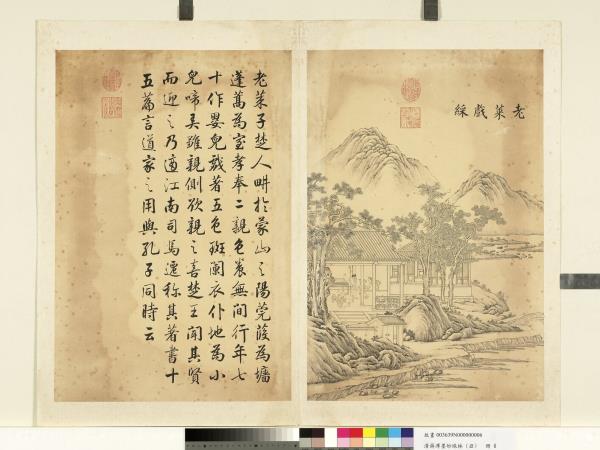 老萊戲綵
老萊子楚人畊於蒙山之陽莞葭為墻
蓬蒿為室孝奉二親色養無間行年七
十作嬰兒戲著五色斑闌衣仆地為小
兒啼弄雛親側欲親之喜楚王聞其賢
而迎之乃適江南司馬遷稱其著書十
五篇言道家之用與孔子同時云
故畫 003639N000000006
清蔣溥墨妙珠林（丑） 冊 6